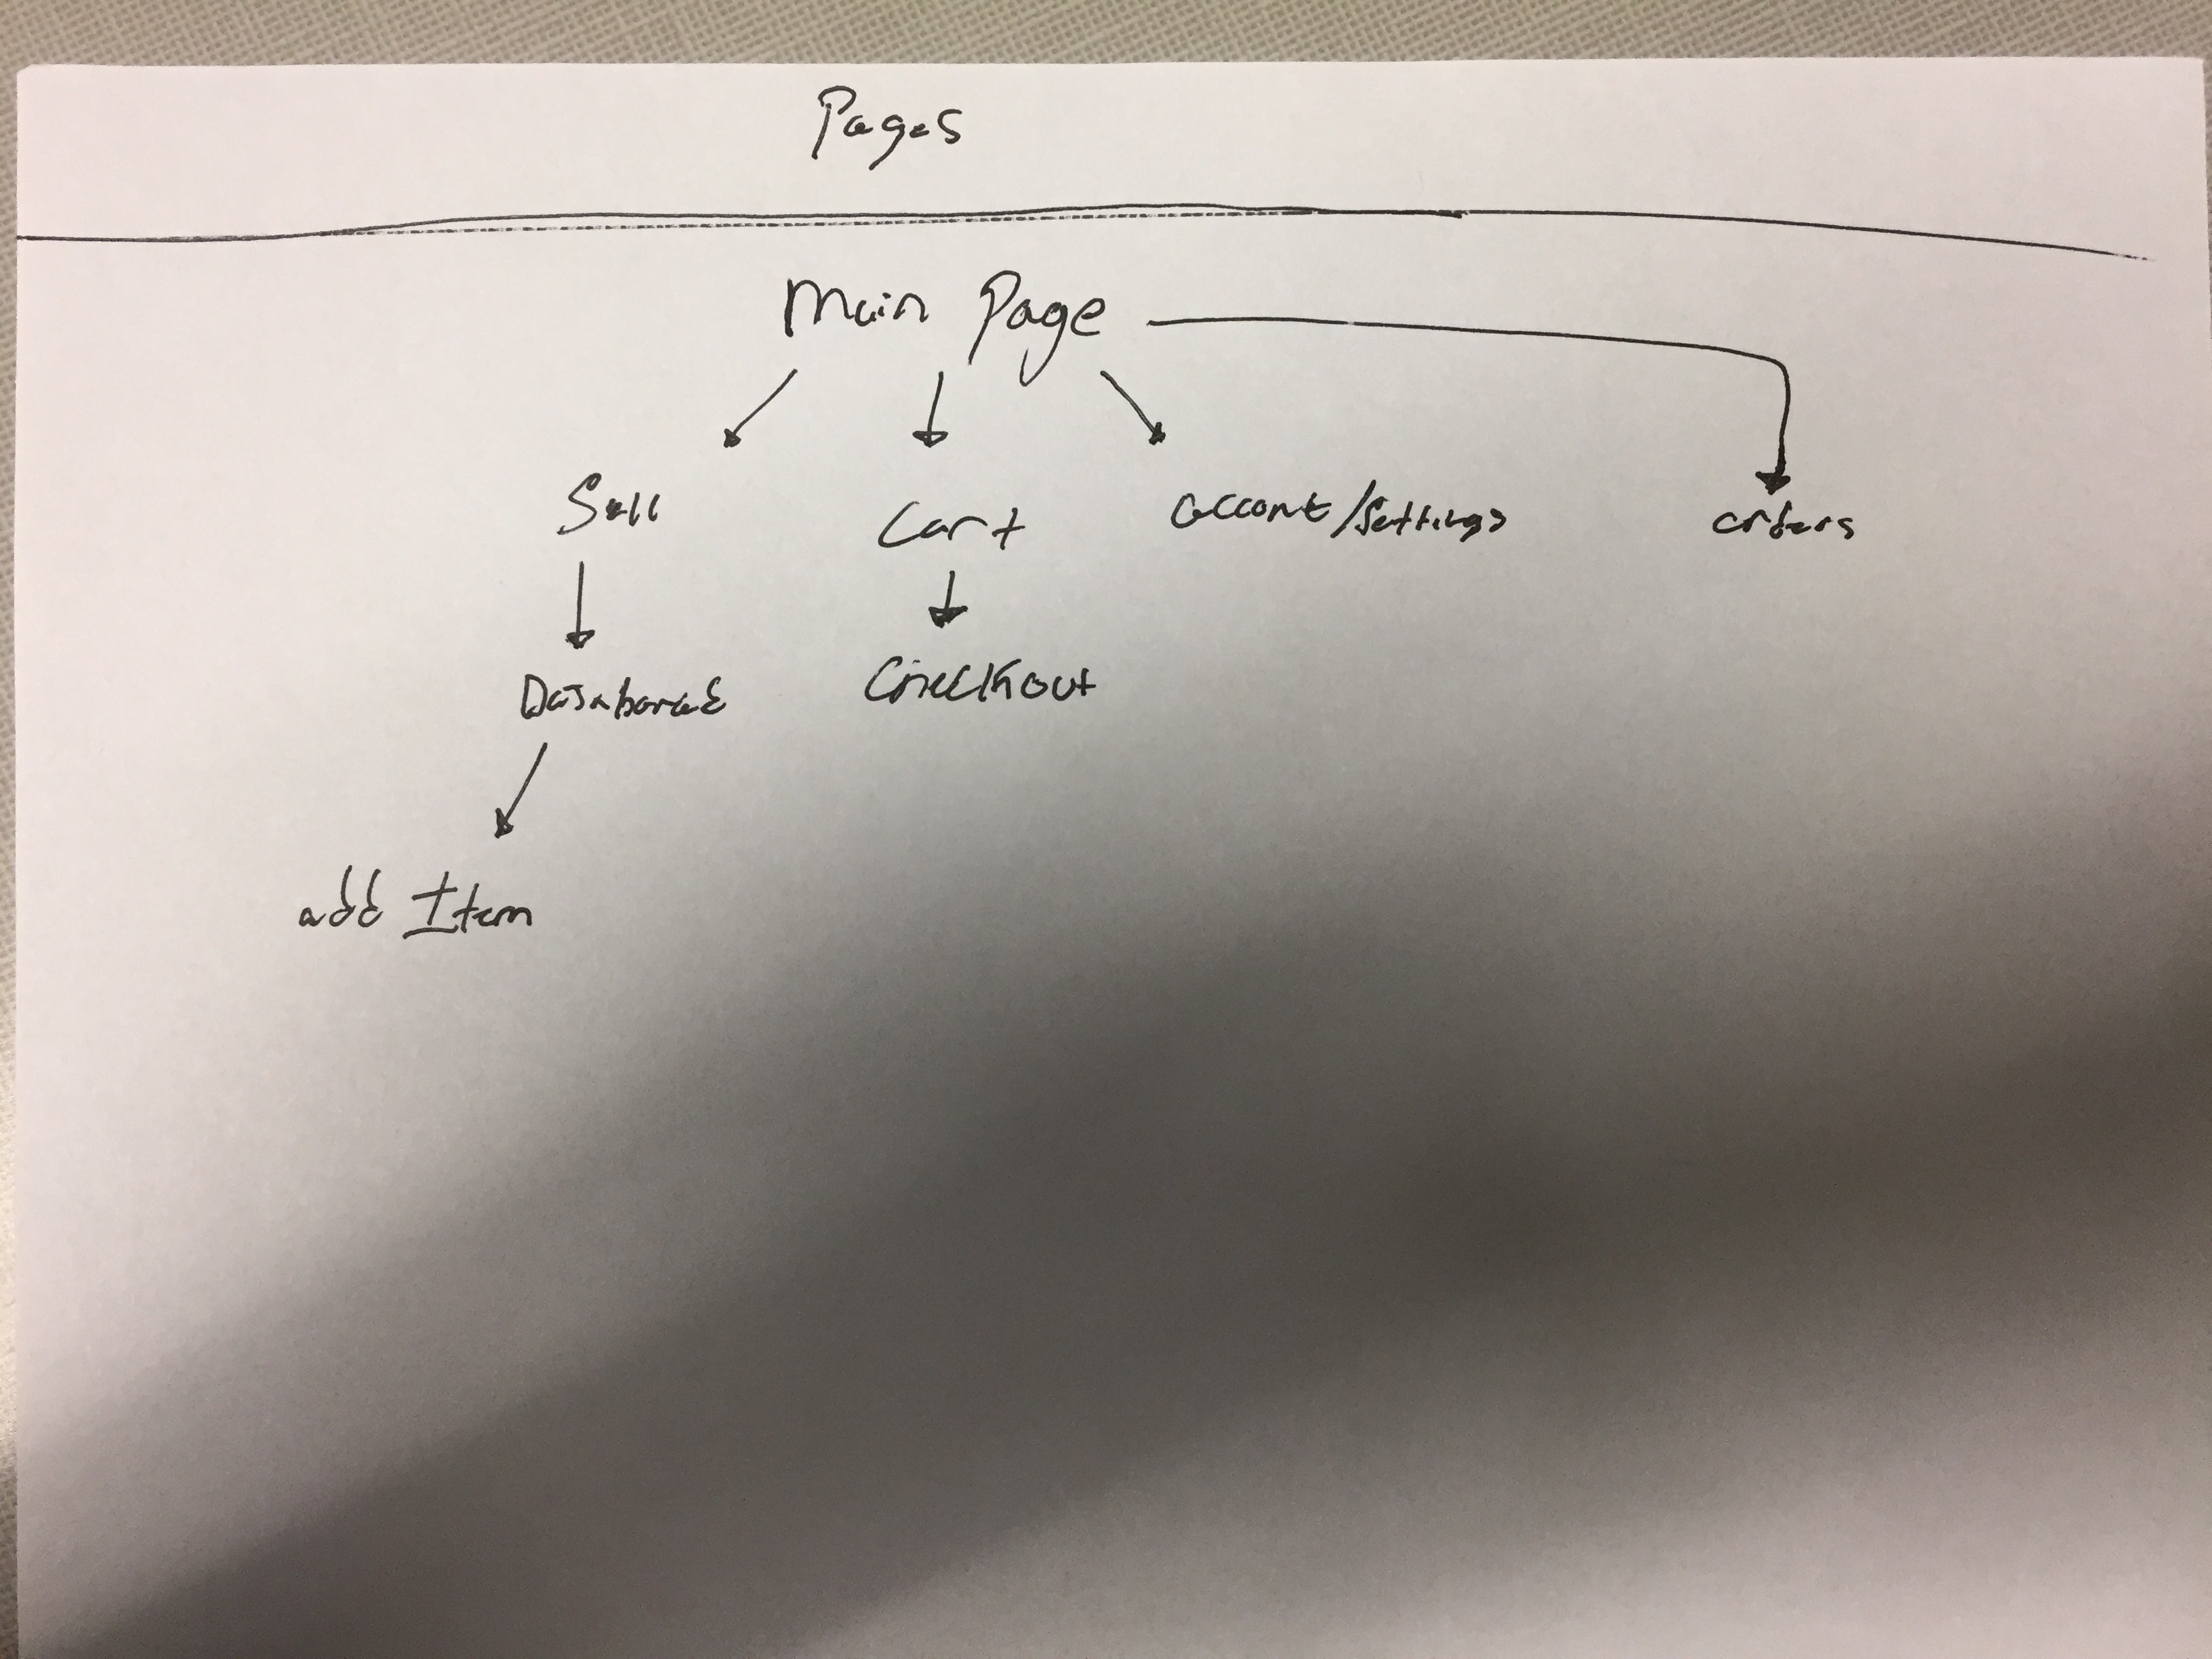 Pages
Main Page
Sell Cart account/settings orders
Dashboard Checkout
add Item